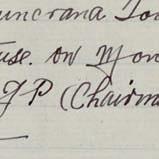 uncrana To
use. on Mon
JP (Chairma